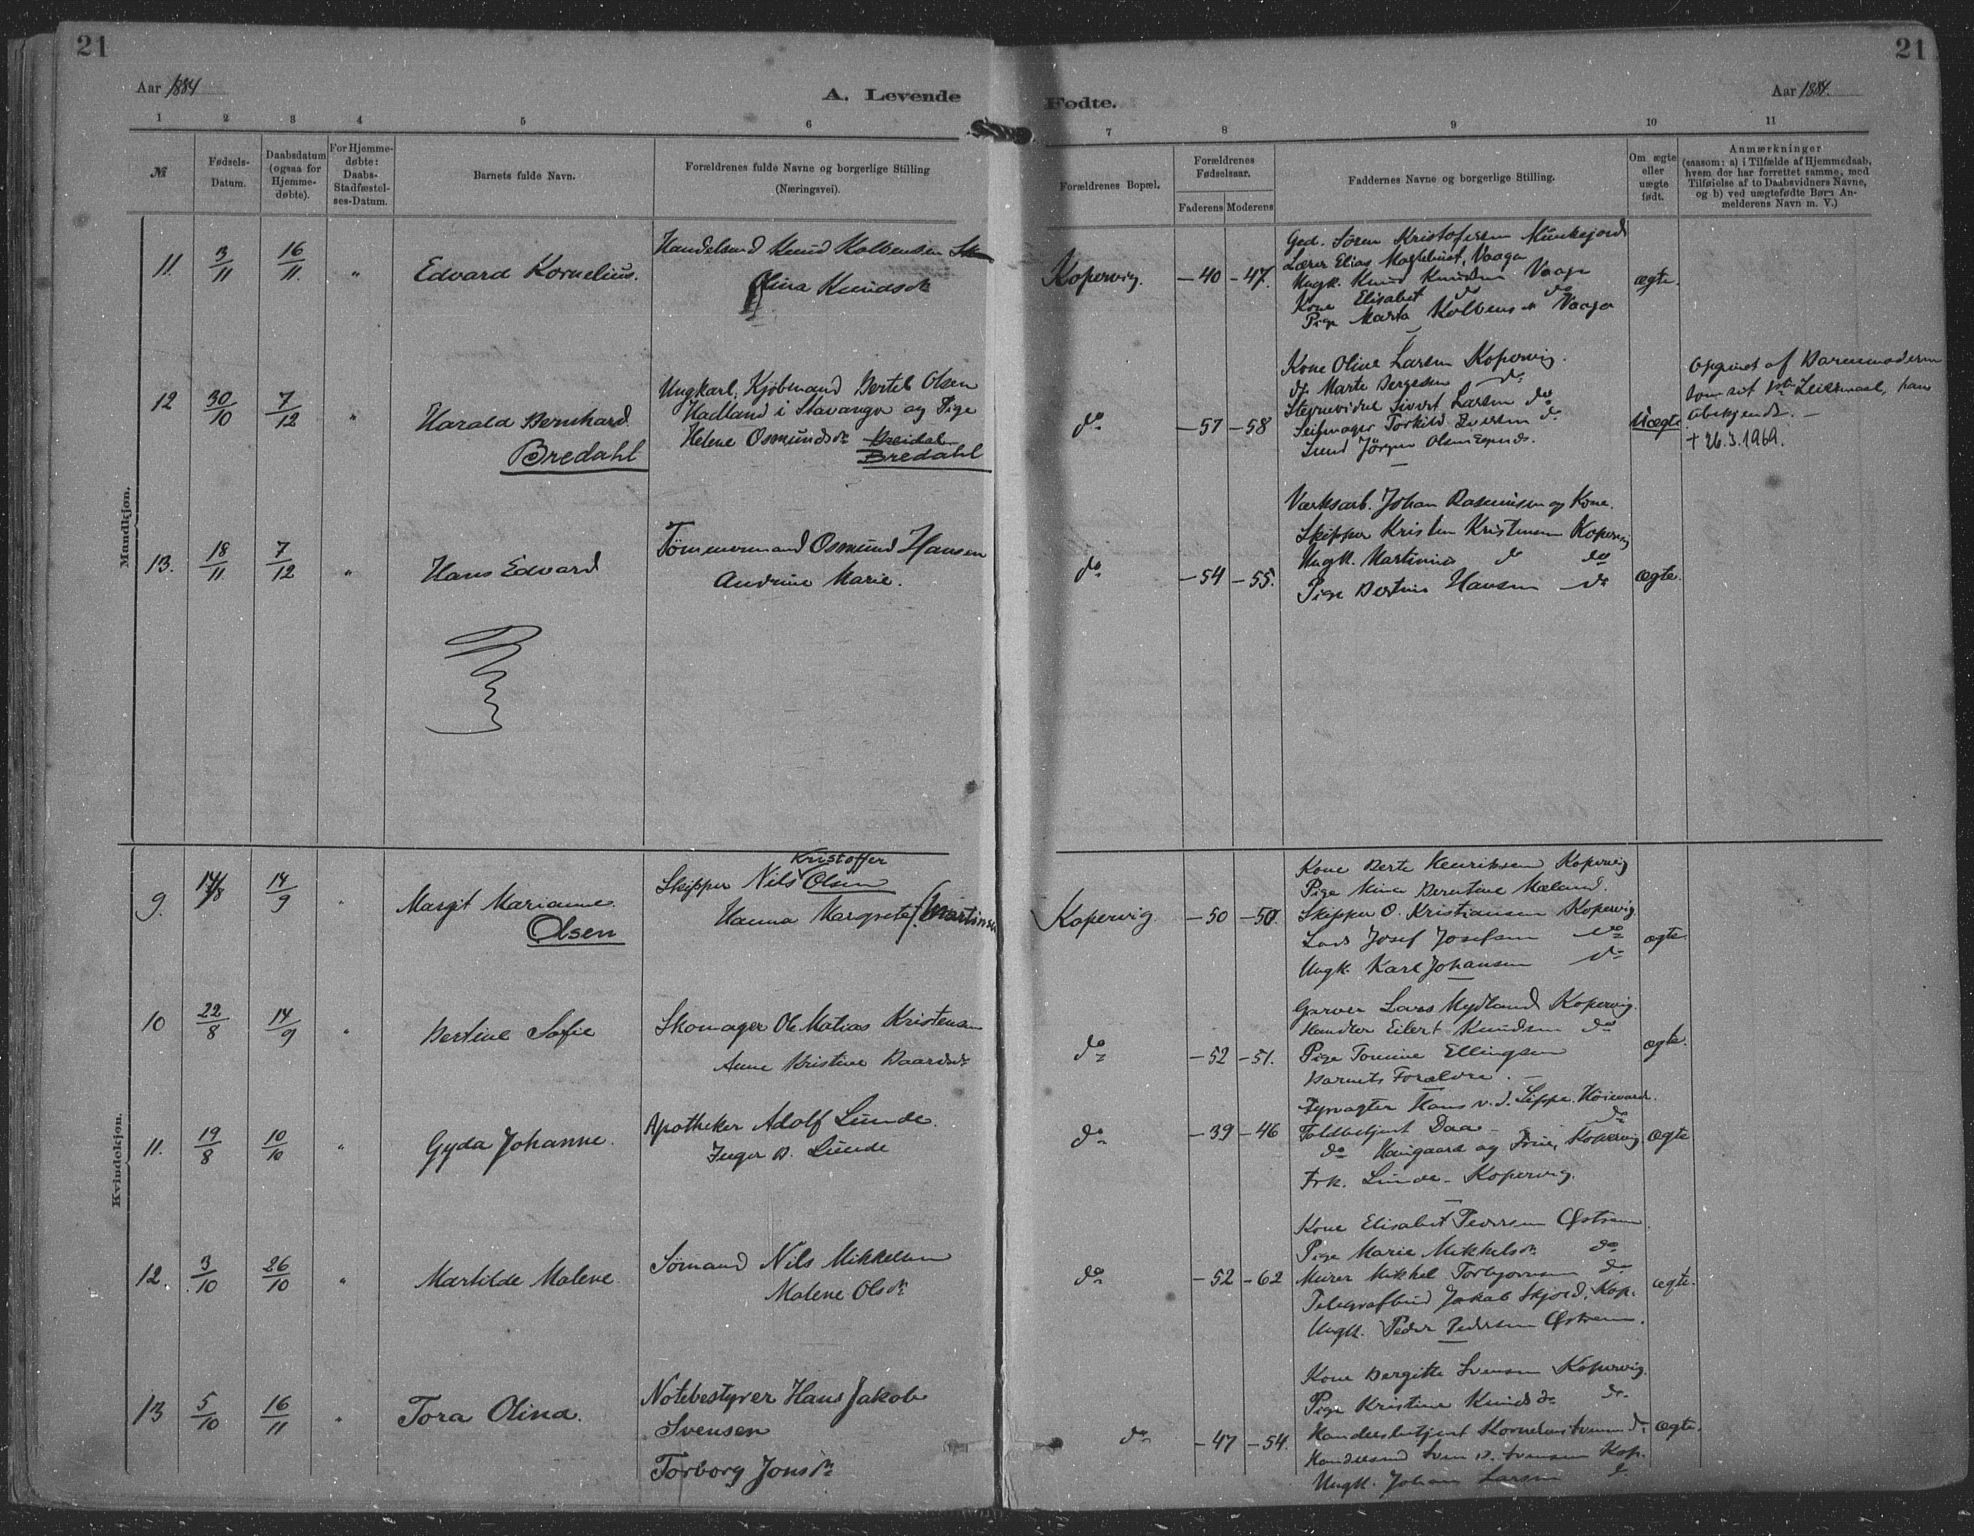 21
21
Aar 1884
A. Levende
Fødte.
Aar 1884.
1 2 3 4 5 6 7 8 9 10 11
№
Fødsels-
Datum.
Daabsdatum
(ogsaa for
Hjemme-
døbte).
For Hjemme-
døbte:
Daabs-
Stadfæstel-
ses-Datum.
Barnets fulde Navn.
Forældrenes fulde Navne og borgerlige Stilling
(Næringsvei).
Forældrenes Bopæl.
Forældrenes
Fødselsaar.
Faderens Moderens
Faddernes Navne og borgerlige Stilling.
Om ægte
eller
uægte
født.
Anmærkninger
(saasom: a) i Tilfælde af Hjemmedaab,
hvem der har forrettet samme, med
Tilføielse af to Daabsvidners Navne,
og b) ved uægtefødte Børn An-
melderens Navn m. V.)
Mandkjøn.
11. 3/11 16/11. "
Edvard Kornelius.
Handelsmd Knud Kolbensen
Olina Knudsdr
Kopervig. -40 -47.
Gad. Søren Kristofersen Munkejord
Lærer Elias Vaaga
Ungk. Knud Knudsen Vaage
Kone Elisabet do do
Pige Marta Kolbens dr Vaage
ægte.
12 30/10 7/12 "
Harald Bernhard
Bredahl
Ungkarl, Kjøbmand Bertel Olsen
Hadland i Stavanger og Pige
Helene Osmundsdr
Bredahl
do -57 -58
Kone Oline Larsen Kopervig.
do Marte Bergesen do
Sivert Larsen do
Seilmager Torkild Iversen do
Jørgen Olsen
Uægte
Opgivet af Barnemoderen
som sit 1ste Leiermaal, han
ubekjendt. —
† 26.3.1969.
13. 18/11 7/12 "
Hans Edvard
Tømmermand Osmund Hansen
Andrine Marie.
do -54 -55.
Værksarb. Johan Rasmusen og Kone.
Skipper Kristen Kristensen Kopervig
Ungk. Martinius do do
Pige Bertine Hansen do
ægte.
Kvindekjøn.
9. 14/8 14/9 "
Margit Marianne.
Olsen
Kristoffer
Skipper Nils Olsen
Hanna Margrete f. Martinsen
Kopervig -50 -50.
Kone Berte Henriksen Kopervig
Pige Mina Berntine Mæland.
Skipper O. Kristiansen Kopervig
Lods Josef Josefsen do
Ungk. Karl Johansen do
ægte.
10 22/8 14/9 "
Bertine Sofie
Skomager Ole Matias Kristensen
Anne Kristine Baardsdr
do -52 -51.
Garver Lars Mydland Kopervig.
Handler Eilert Knudsen do
Pige Tomine Ellingsen
Barnets Forældre. —
ægte.
11. 19/8 10/10 "
Gyda Johanne.
Apotheker Adolf Lunde.
Inger B. Lunde
do -39 -46
Fyrvogter Hans v. d. Lippe. Høievarde.
Toldbetjent Daae do
do og Frue, Kopervig
Frk. Lunde - Kopervig.
ægte
12. 3/10 26/10 "
Martilde Malene
Sømand Nils Mikkelsen
Malene Olsdr
do -52 -62
Kone Elisabet Pedersen Østrem
Pige Marie Mikkelsdr do
Murer Mikkel Torbjørnsen do
Telegrafbud Jakob Skjold, Kop.
Ungk. Peder Pedersen Østrem.
ægte.
13 5/10 16/11 "
Tora Olina.
Notebestyrer Hans Jakob
Svensen
Torborg Jonsdr
do -47 -54.
Kone Bergitte Svensen Kopervig.
Pige Kristine Knudsdr do
Handelsbetjent Kornelius Svensen do
Handelsmd Sven B. Svensen Kop.
Ungk. Johan Larsen do
ægte.